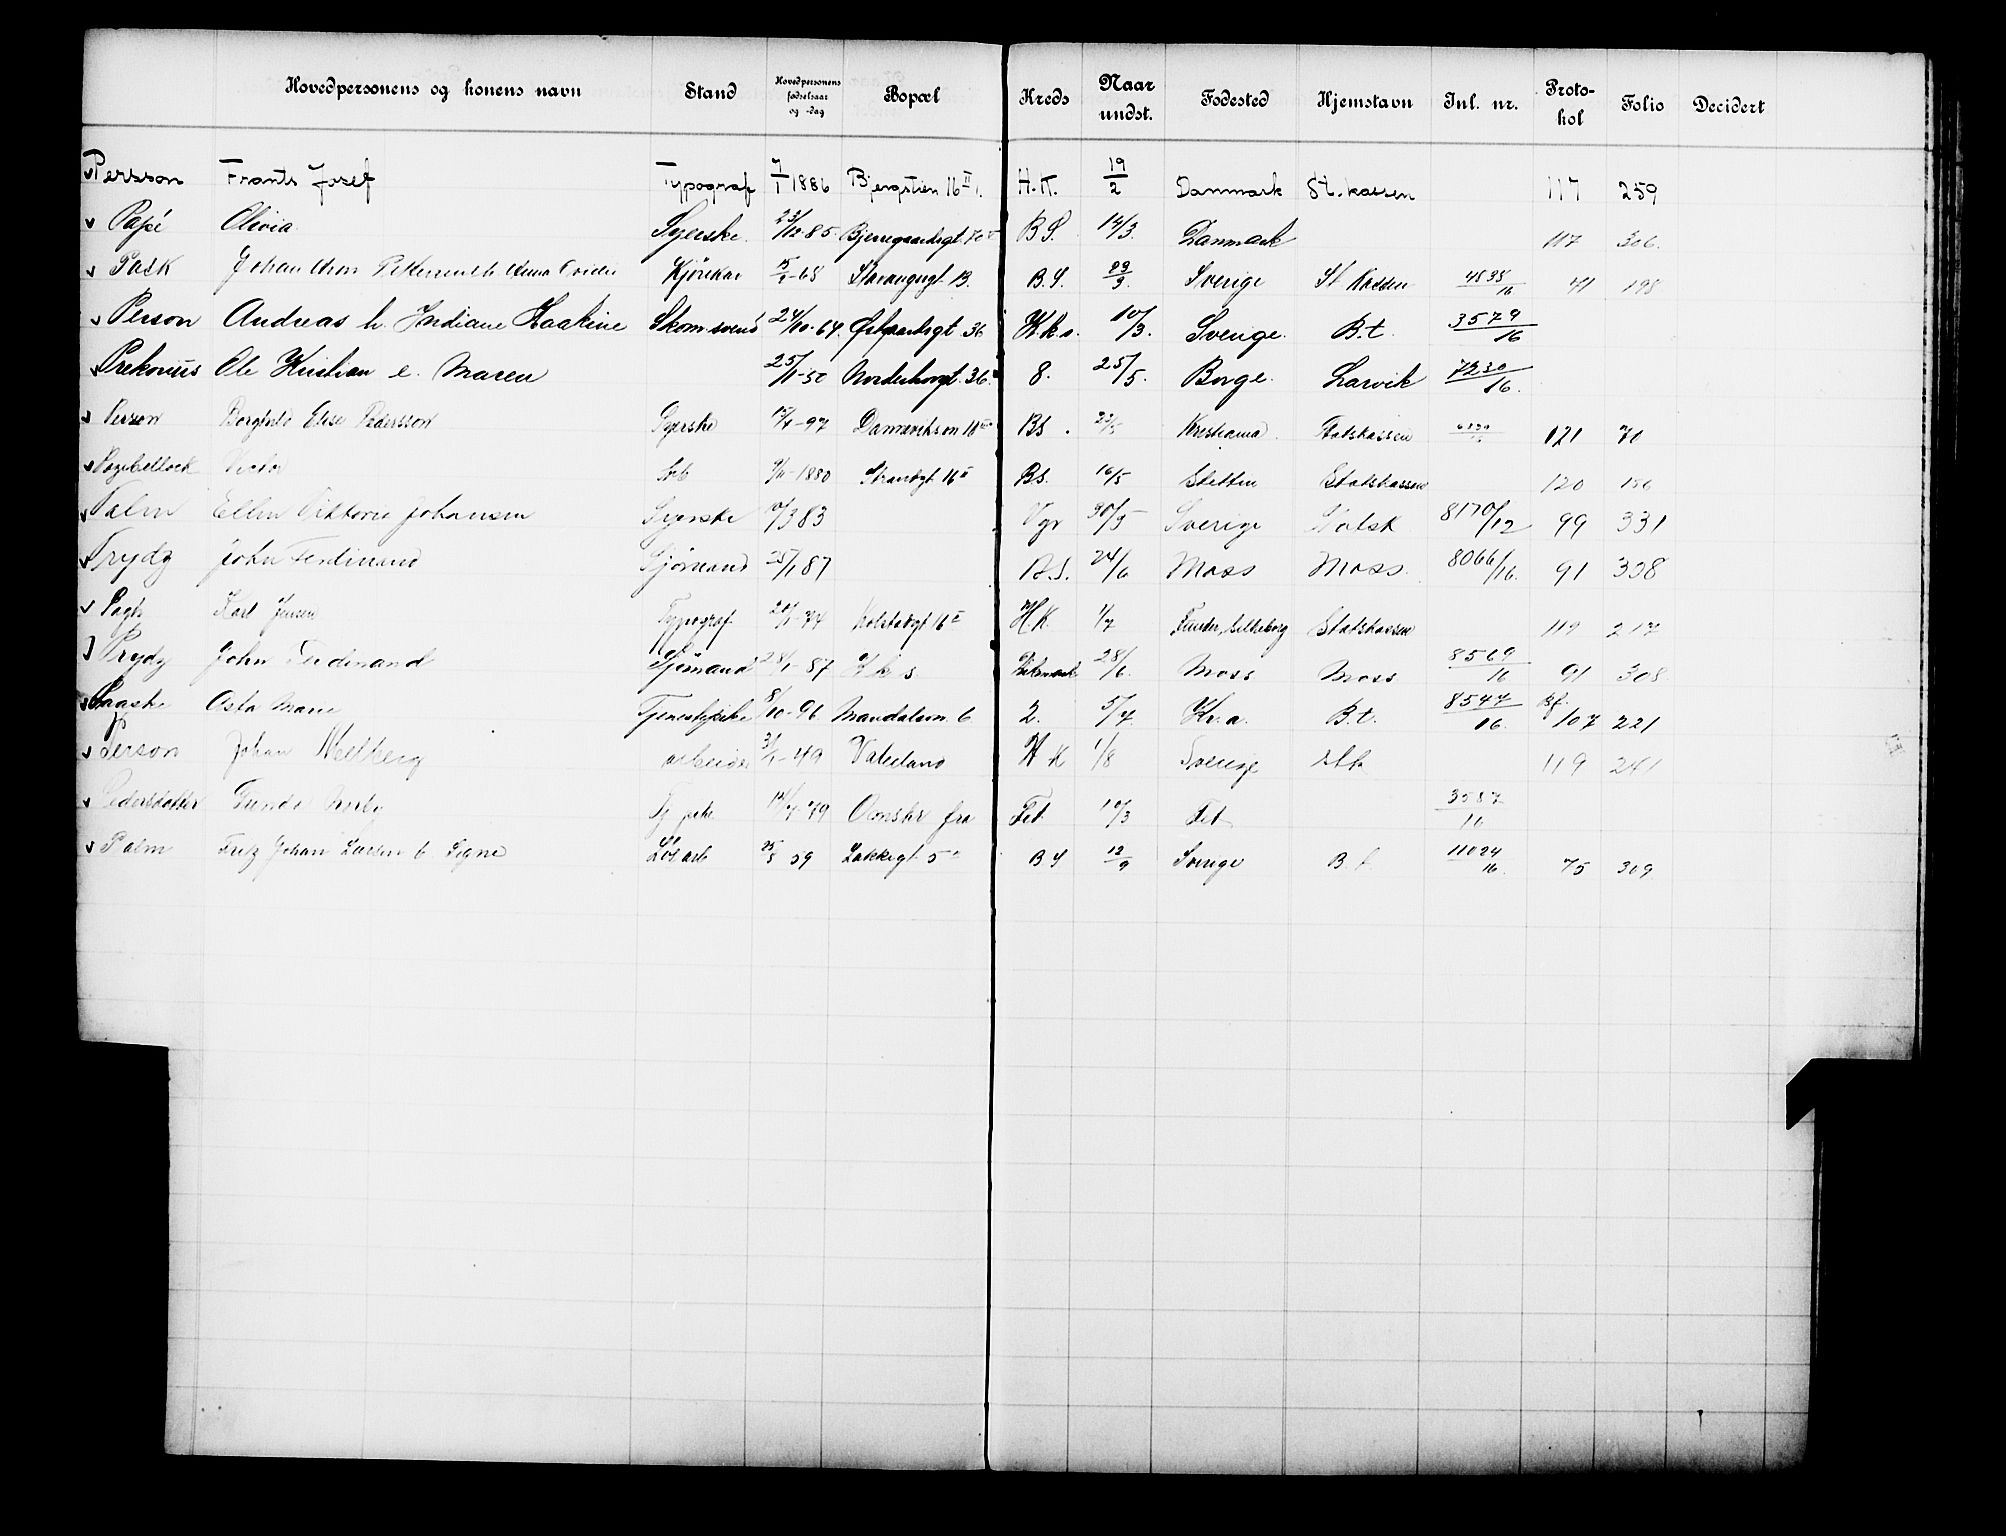 Hovedpersonens og konens navn Stand Hovedpersonens fødselsaar og -dag Bopæl Kreds Naar undst. Fødested Hjemstavn Jnl. nr. Protokol Folio Decidert
Persson Frants Josef Typograf 7/1 1886 Bjergstien 16 II H.K. 19/2 Danmark St. kassen 117 259
Papé Olivia Syerske 23/12-85 Bjerregaardsgt. 70 B.S. 14/3 Danmark 117 306
Pask Johan Kjørekar 15/1-68 Stavangergt 13. B.S. 23/3. Sverige St Kassen 4838/16 41 198
Person Andreas h. Jndiane Haakine Skom.svend 24/10-64. Østgaardsgt. 36 K.k.s. 10/3. Sverige B.t. 3579/16
Prekonius Ole Kristian e. Maren 25/11-50 Norderhovgt. 36. 8. 25/5. Borge Larvik 7230/16.
Person Borghild Elise Pederssen Syerske 15/4-97 Dannevikson 18 BS. 22/5 Kristiania Statskassen 121 70
Victor 9/11-1880 Strandgt 16 II BS. 16/5 Stettin Statskassen 120 186
Palm Ellen Viktoria Johansen Syerske 10/3 83 Vgr 30/5 Sverige Statsk 8170/12 99 331
Prydz John Ferdinand Sjømand 25/1 87 B.S. 24/6 Moss Moss. 8066/16. 91 308
Pagh Karl Jensen Typograf 20/1-74 Kolstadgt 16 II H.K. 1/7 Funder, Silkeborg Statskassen 119 217
Prydz John Ferdinand Sjømand 28/1-87 K.k.s. 28/6. Moss Moss 8569/16 91 308
Paaske Asta Marie Tjenestepike 8/10-96 Mandalsvn. 6 2. 5/7. Kr.a. B.t. 8547/16. Bf. 107 221
Person Johan Wedberg arbeider 3/1-49 Vaterland H K 1/8 Sverige stk 119 241
Pedersdatter Tj. pike 14/7-79 Omstr. fra Fet 10/3 Fet 3587/16
Palm Fritz Johan Larsen h Signe Løsarb 25/5 59 Lakkegt 5 B S 12/9 Sverige B.t. 11024/16. 75 309